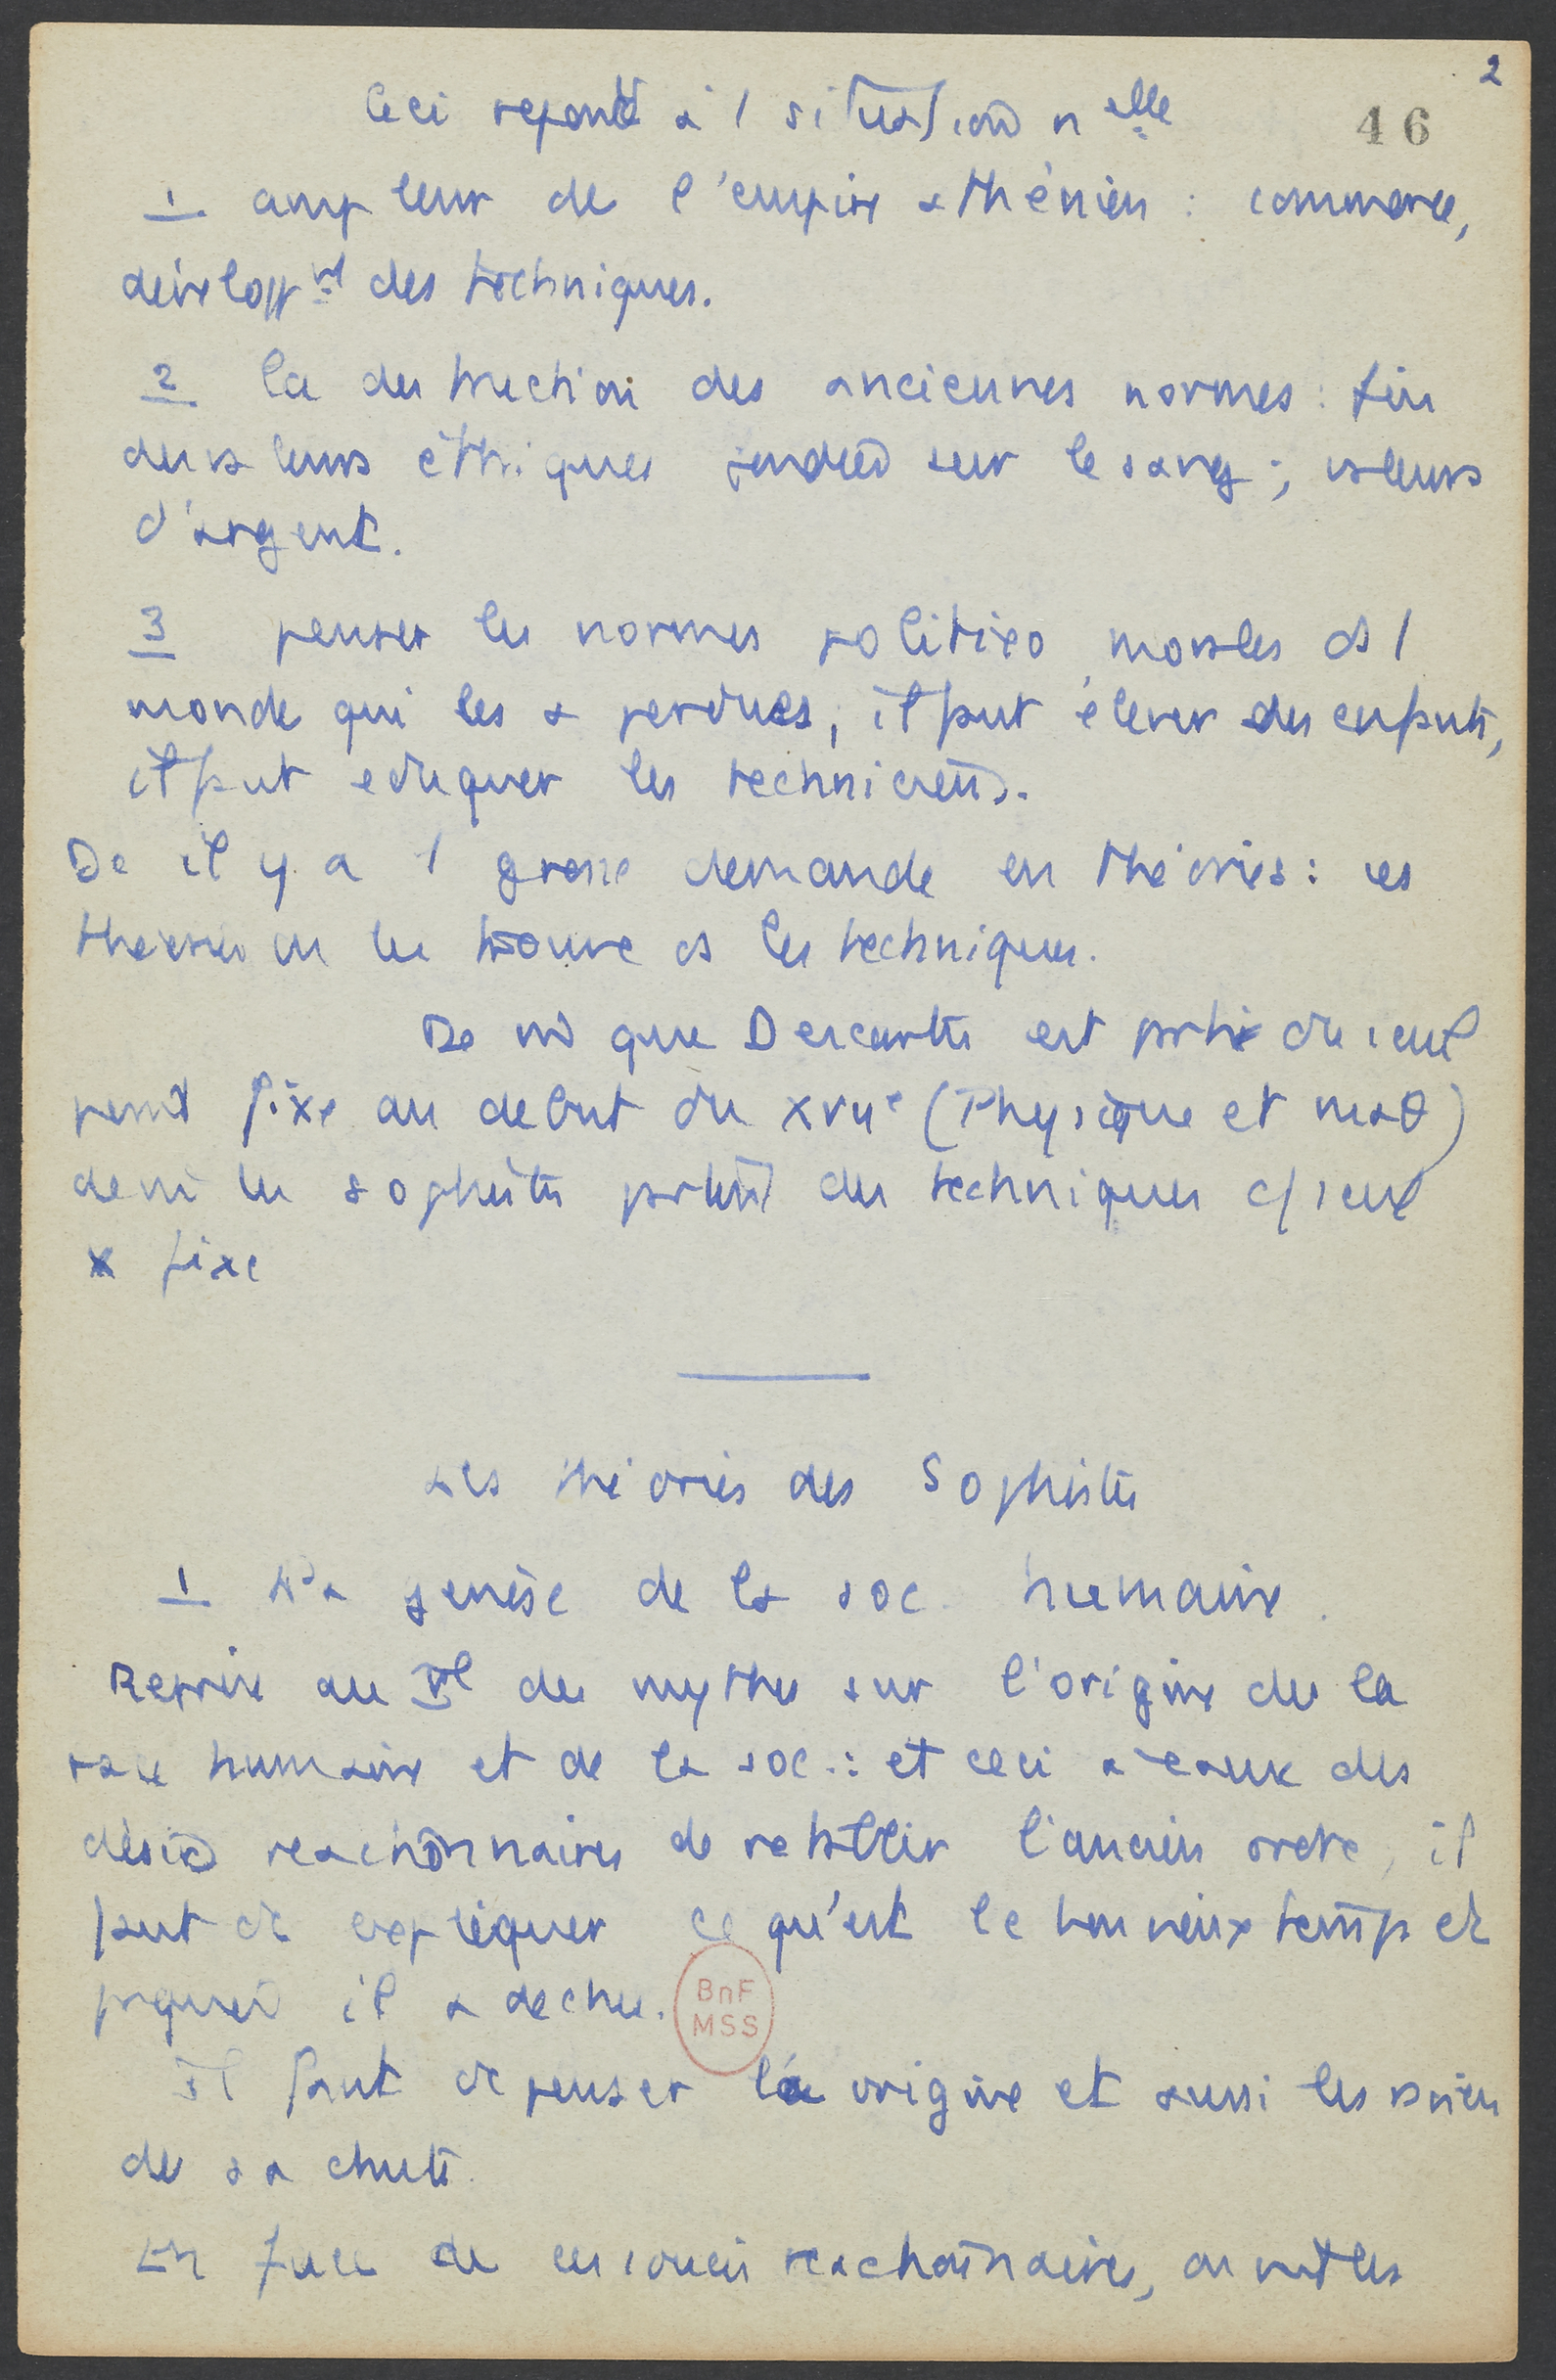 2
46
Ceci répond à 1 situation nelle
1 ampleur de l'empire athénien : commerce,
développt des techniques.
2 la destruction des anciennes normes : fin
des valeurs éthiques fondées sur le sang ; valeurs
d'argent.
3 penser les normes politico morales ds 1
monde qui les a perdues, il faut élever des enfants,
il faut eduquer les techniciens.
Dc il y a 1 grosse demande en théories : ces
theories on les trouve ds les techniques.
De m que Descartes est parti du seul
point fixe au debut du XVIIe (Physique et maθ)
de m les sophistes partent des techniques c/ seul
x fixe
Les théories des Sophistes
1 La genèse de la soc. humaine.
Reprise au Ve des mythes sur l'origine de la
race humaine et de la soc. : et ceci à cause des
désirs reactionnaires de retablir l'ancien ordre, il
faut dc expliquer ce qu'est le bon vieux temps et
pourquoi il a dechu.
BnF
MSS
Il faut dc penser la origine et aussi les raisons
de sa chute.
En face de ces soucis reactionnaires, on voit les